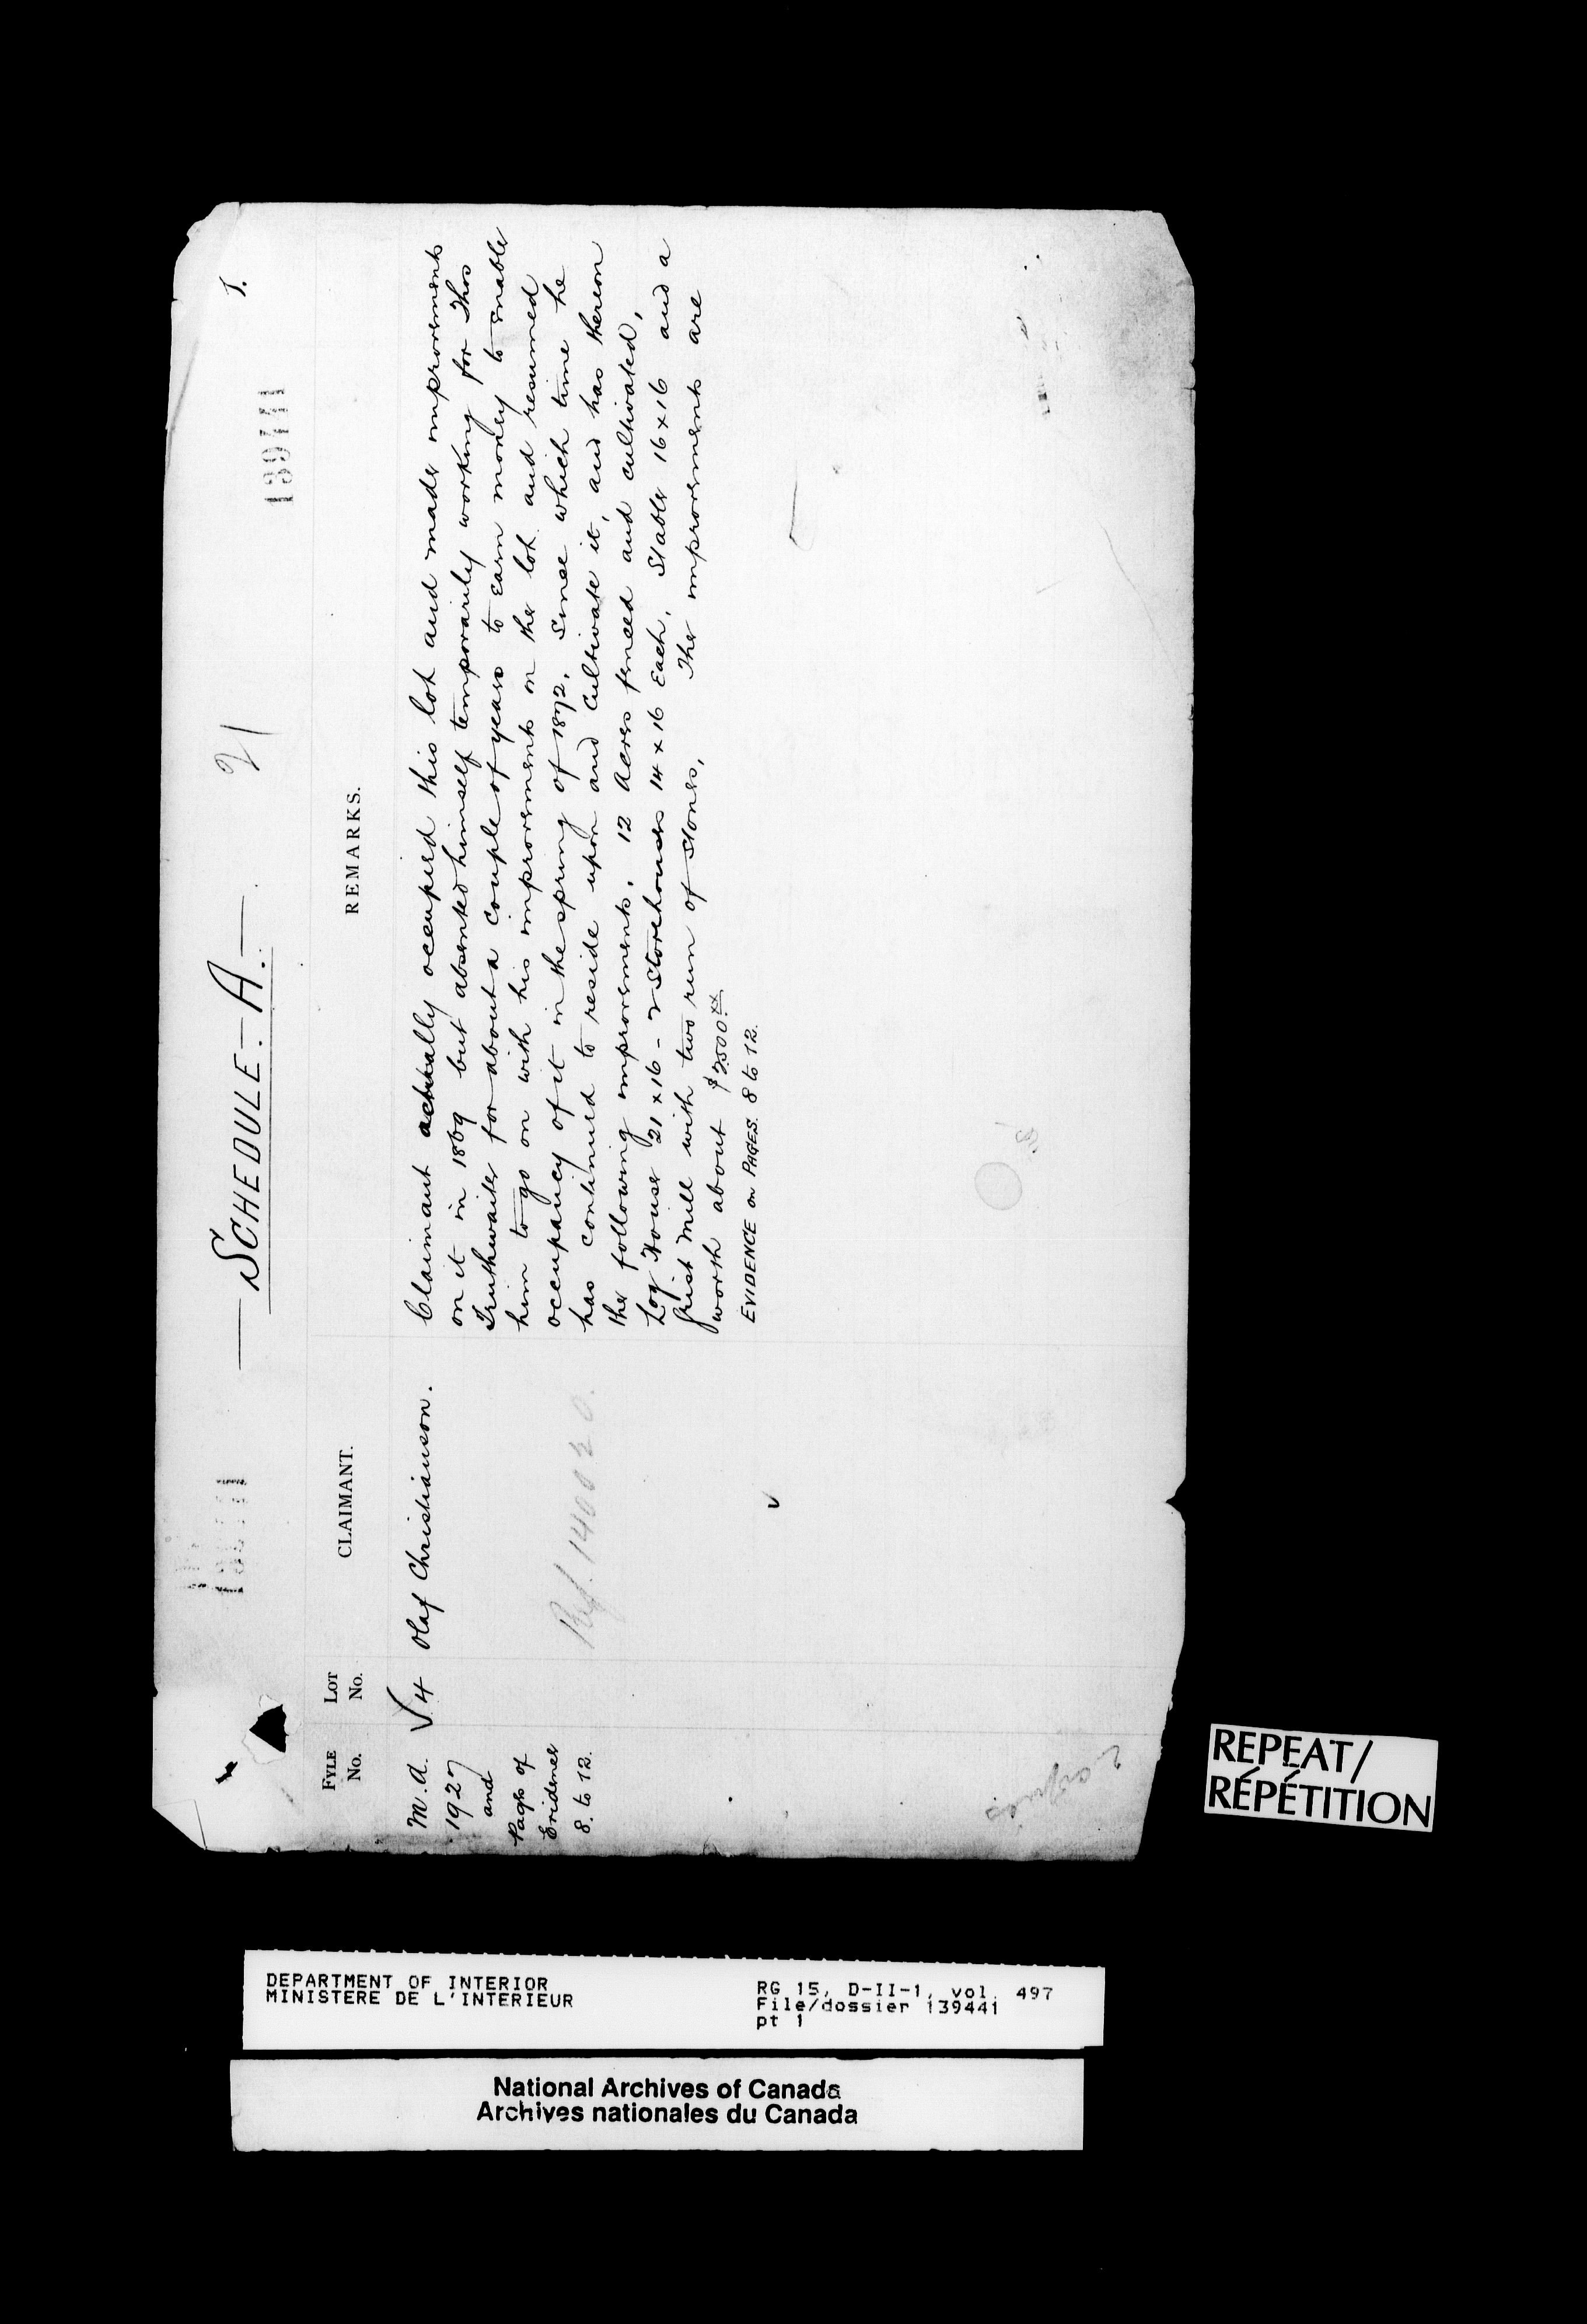 1.
139441
— SCHEDULE. A. —
21
FYLE No.
LOT No.
CLAIMANT.
REMARKS.
M.A.
1927
and
Pages of
Evidence
8. to 12.
√ 4
Olaf Christianson.
Ref. 140020.
Claimant actually occupied this lot and made improvements
on it in 1869 but absented himself temporarily working for Thos
Truthwaite for about a couple of years to earn money to enable
him to go on with his improvements on the lot and resumed
occupancy of it in the spring of 1872, since which time he
has continued to reside upon and cultivate it, and has thereon
the following improvements. 12 Acres fenced and cultivated,
Log House 21 x 16 - 2 Storehouses 14 x 16 Each, Stable 16 x 16 and a
Grist Mill with two run of Stones, The improvements are
worth about $2500.xx
EVIDENCE on PAGES. 8 to 12.
2 copies
REPEAT/
RÉPÉTITION
DEPARTMENT OF INTERIOR
MINISTERE DE L'INTERIEUR
RG 15, D-II-1, vol. 497
File/dossier 139441
pt 1
National Archives of Canada
Archives nationales du Canada